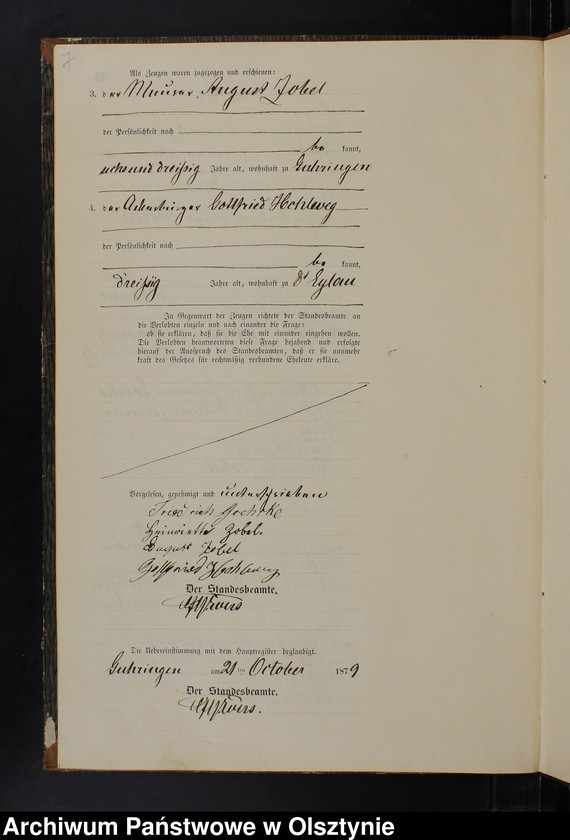 7
Als Zeugen waren zugezogen und erschienen:
3. der Maurer August Zobel
der Persönlichkeit nach
be kannt,
sechsunddreißig Jahre alt, wohnhaft zu Guhringen
4. der Ackerbürger Gottfried Hohlweg
der Persönlichkeit nach
be kannt,
dreißig Jahre alt, wohnhaft zu Dt Eylau
In Gegenwart der Zeugen richtete der Standesbeamte an
die Verlobten einzeln und nach einander die Frage:
ob sie erklären, daß sie die Ehe mit einander eingehen wollen.
Die Verlobten beantworteten diese Frage bejahend und erfolgte
hierauf der Ausspruch des Standesbeamten, daß er sie nunmehr
kraft des Gesetzes für rechtmäßig verbundene Eheleute erkläre.
Vorgelesen, genehmigt und unterschrieben
Friedrich
Henriette Zobel.
August Zobel
Gottfried Hohlweg
Der Standesbeamte.
Die Uebereinstimmung mit dem Hauptregister beglaubigt.
Guhringen am 21 ten October 1879
Der Standesbeamte.
Archiwum Państwowe w Olsztynie